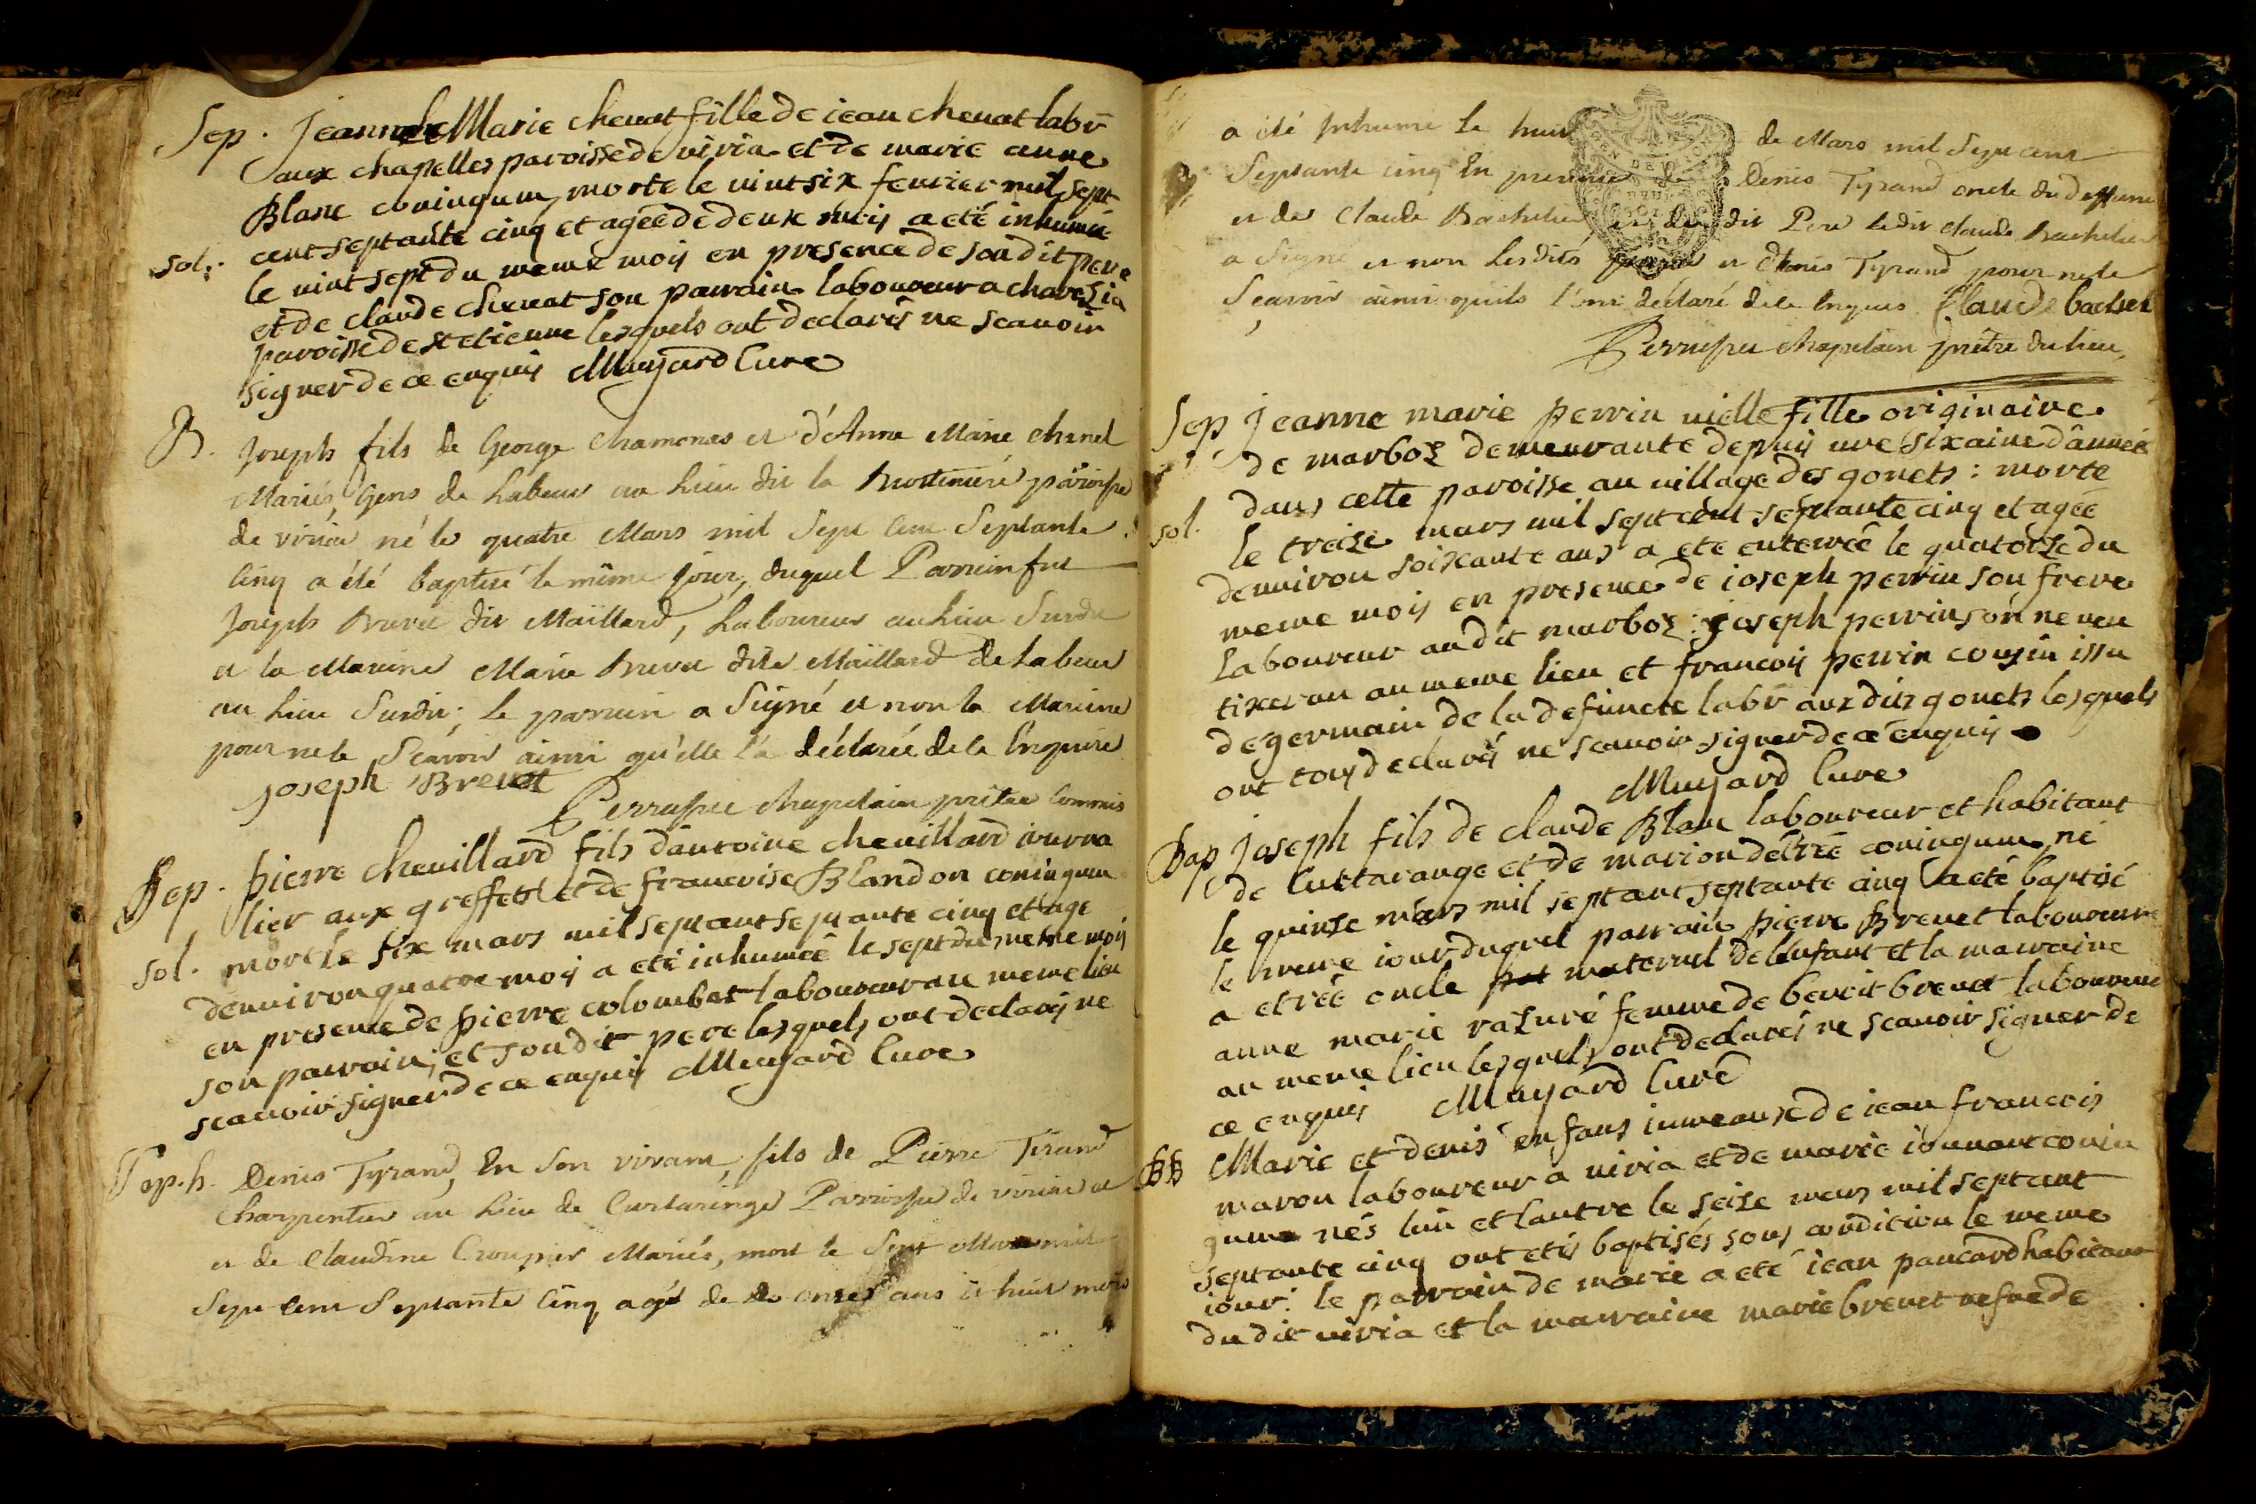 Sep. Jeanne Marie chenat fille de iean chenat labr
aux chapelles paroisse de viria et de marie anne
Blanc coniugum, morte le vint six fevrier mil sept
cent septante cinq et agée de deux mois a eté inhumée
sol. le vint sept du meme mois en presence de son dit pere
et de claude chenat son parrain laboureur a
paroisse de st etienne lesquels ont declarés ne scavoir
signer de ce enquis Mujard Cure
B. Joseph fils de George Chamonas et d'Anne Marie chanel
Mariés, Gens de Labeur au lieu dit la paroisse
de viria né le quatre Mars mil Sept Cent Septante
Cinq a été baptisé le même jour, duquel Parrain fut
Joseph Brevet dit Maillard, Laboureur au lieu Susdit
et la Maraine Marie Brevet dite Maillard de Labeur
au lieu Susdit; le parrain a Signé et non la Maraine
pour ne le Scavoir ainsi qu'elle l'a déclarée de le Enquise
joseph Brevet
chapelain prêtre Commis
Sep. pierre chevillard fils dantoine chevillard iurna
lier aux greffets et de francoise Blandon coniugum
sol. mort le six mars mil septant septante cinq et agé
denviron quatre mois a eté inhumeé le sept du meme mois
en presence de pierre colombat laboureur au meme lieu
son parrain, et son dit pere lesquels ont declarés ne
scavoir signer de ce enquis Mujard Cure
Sep.h. Denis Tyrand, En son vivant, fils de Pierre Tirand
Charpentier au Lieu de Curtaringe Parroisse de viriat et
et de Claudine Croupier Mariés, mort le Sept Mars mil
Sept Cent Septante Cinq agé de onze ans et huit mois
a été Inhumé le huit de Mars mil Sept Cent
Septante cinq En presence de Denis Tyrand oncle du deffunt
et de Claude Bachelier et du dit Pere ledit Claude Bachelier
a Signé et non Lesdits et Denis Tyrand pour ne le
Scavoir ainsi qu'ils l'ont déclaré de le Enquis Claude bachel
chapelain prêtre du lieu
Sep Jeanne marie perrin vielle fille originaire
de marboz demeurante depuis une sixaine d'années
dans cette paroisse au village des gonets: morte
sol. le treize mars mil septcent septante cinq et agée
denviron soixante ans a ete enterrée le quatorze du
meme mois en presence de ioseph perrin son frere
Laboureur audit marboz: joseph perrin son neveu
tixeran au meme lieu et francois perrin cousin issu
de germain de la defuncte labr aux dits gonets lesquels
ont tous declarés ne scavoir signer de ce enquis
Mujard Cure
Bap Joseph fils de claude Blanc laboureur et habitant
de Curtarange et de marion coniugum né
le quinze mars mil septant septante cinq a eté baptisé
le meme iour duquel parrain pierre Brevet laboureur
a etreé oncle pat maternel de lenfant et la marraine
anne marie razuré femme de benoit brevet laboureur
au meme lieu lesquels ont declarés ne scavoir signer de
ce enquis Mujard Curé
BB Marie et denis enfans iumeaux de iean francois
maron laboureur a viria et de marie coniu
gum nés lun et lautre le seize mars mil septant
septante cinq ont etés baptisés sous condition le meme
iour: le parrain de marie a eté iean pancard habitant
du dit viria et la marraine marie brevet vefve de